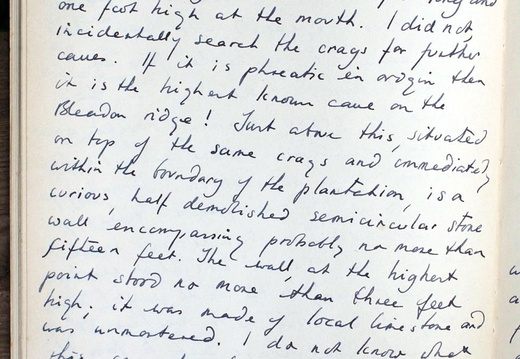 one foot high at the mouth. I did not,
incidentally search the crags for further
caves. If it is phreatic in origin then
it is the highest known cave on the
Bleadon ridge! Just above this, situated
on top of the same crags and immediately
within the boundary of the plantation, is a
curious, half demolished semicircular stone
wall encompassing probably no more than
fifteen feet. The wall, at the highest
point stood no more than three feet
high; it was made of local limestone and
was unmortared. I do not know what